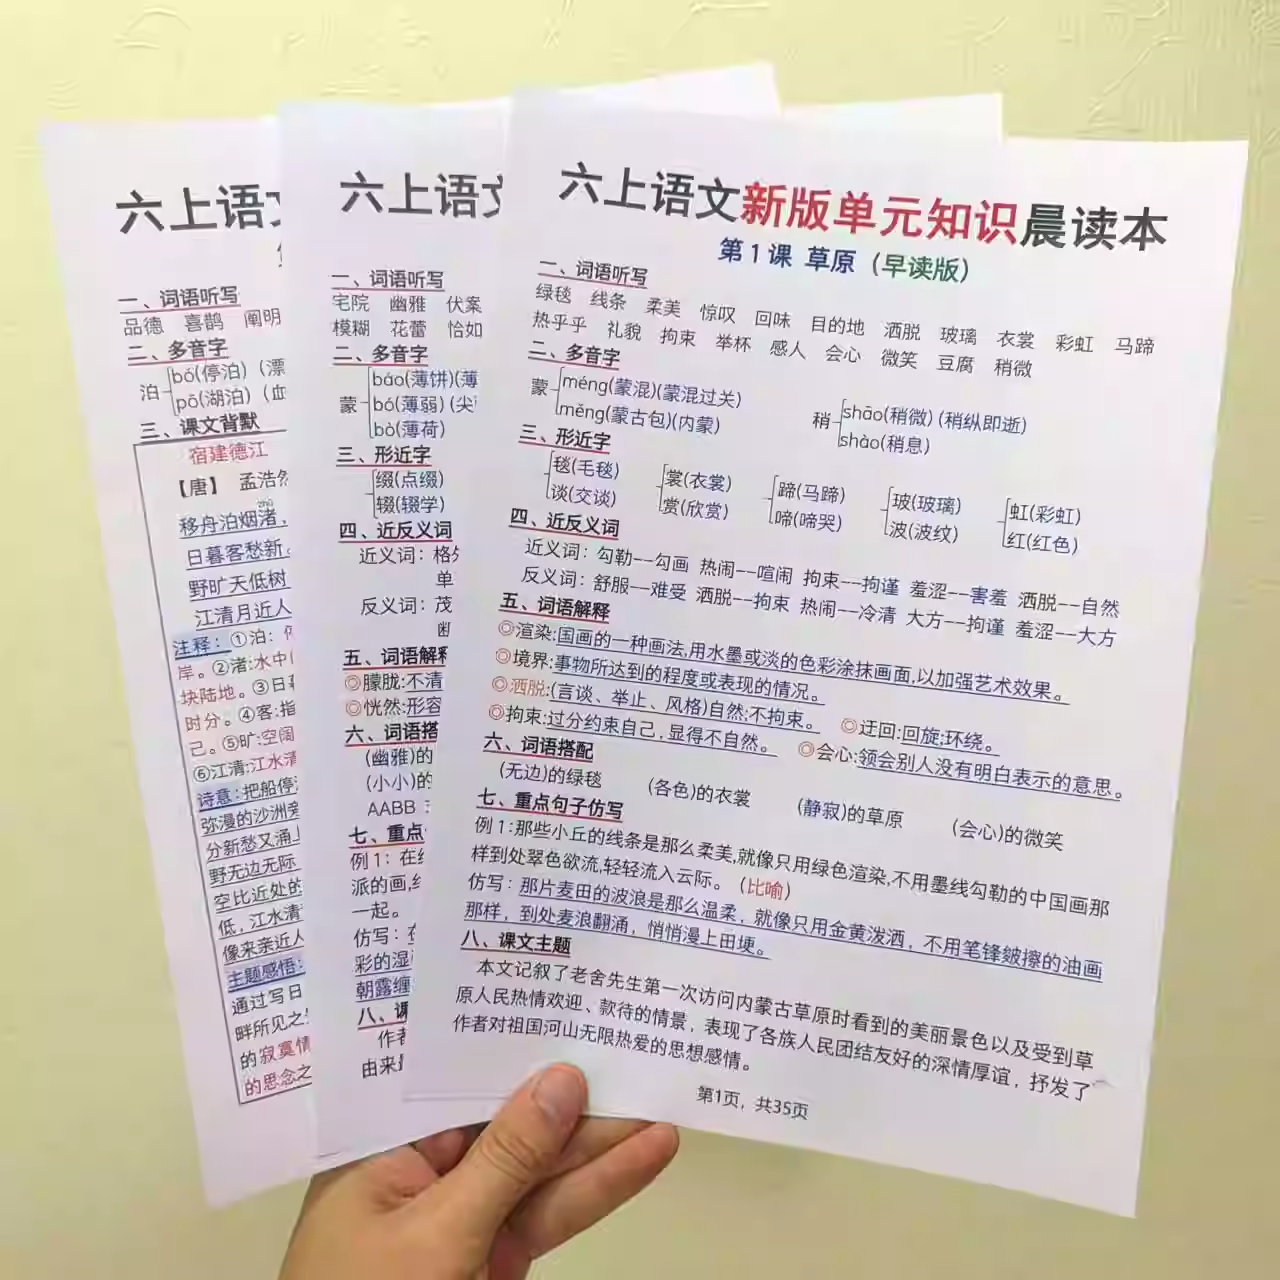 六上语文
一、词语听写
品德 喜鹊 阐明
二、多音字
泊
bó(停泊)(漂
pō(湖泊)(血
三、课文背默
宿建德江
【唐】 孟浩然
移舟泊烟渚，
日暮客愁新。
野旷天低树
江清月近人
注释：①泊：停
岸。②渚:水中
块陆地。③日暮
时分。④客:指
己。⑤旷:空阔
⑥江清:江水清
诗意:把船停
弥漫的沙洲旁
分新愁又涌上
野无边无际
空比近处的
低，江水清
像来亲近人
主题感悟:
通过写日
畔所见之
的寂寞情
的思念之
六上语文
一、词语听写
宅院 幽雅 伏案
模糊 花蕾 恰如
二、多音字
蒙
báo(薄饼)(薄
bó(薄弱)(尖
bò(薄荷)
三、形近字
缀(点缀)
辍(辍学)
四、近反义词
近义词：格外
单
反义词：茂
幽
五、词语解释
◎朦胧:不清
◎恍然:形容
六、词语搭
(幽雅)的
(小小)的
AABB
七、重点
例1：在
派的画,
一起。
仿写：在
彩的湿
朝露缠
八、课
作者
由来
六上语文新版单元知识晨读本
第1课 草原（早读版）
一、词语听写
绿毯 线条 柔美 惊叹 回味 目的地 洒脱 玻璃 衣裳 彩虹 马蹄
热乎乎 礼貌 拘束 举杯 感人 会心 微笑 豆腐 稍微
二、多音字
蒙
méng(蒙混)(蒙混过关)
měng(蒙古包)(内蒙)
稍
shāo(稍微) (稍纵即逝)
shào(稍息)
三、形近字
毯(毛毯) 裳(衣裳) 蹄(马蹄) 玻(玻璃) 虹(彩虹)
谈(交谈) 赏(欣赏) 啼(啼哭) 波(波纹) 红(红色)
四、近反义词
近义词：勾勒——勾画 热闹——喧闹 拘束——拘谨 羞涩——害羞 洒脱——自然
反义词：舒服——难受 洒脱——拘束 热闹——冷清 大方——拘谨 羞涩——大方
五、词语解释
◎渲染:国画的一种画法,用水墨或淡的色彩涂抹画面,以加强艺术效果。
◎境界:事物所达到的程度或表现的情况。
◎洒脱:(言谈、举止、风格)自然;不拘束。 ◎迂回:回旋;环绕。
◎拘束:过分约束自己,显得不自然。 ◎会心:领会别人没有明白表示的意思。
六、词语搭配
(无边)的绿毯 (各色)的衣裳 (静寂)的草原 (会心)的微笑
七、重点句子仿写
例1:那些小丘的线条是那么柔美,就像只用绿色渲染,不用墨线勾勒的中国画那
样到处翠色欲流,轻轻流入云际。（比喻）
仿写：那片麦田的波浪是那么温柔，就像只用金黄泼洒，不用笔锋皴擦的油画
那样，到处麦浪翻涌，悄悄漫上田埂。
八、课文主题
本文记叙了老舍先生第一次访问内蒙古草原时看到的美丽景色以及受到草
原人民热情欢迎、款待的情景，表现了各族人民团结友好的深情厚谊，抒发了
作者对祖国河山无限热爱的思想感情。
第1页，共35页